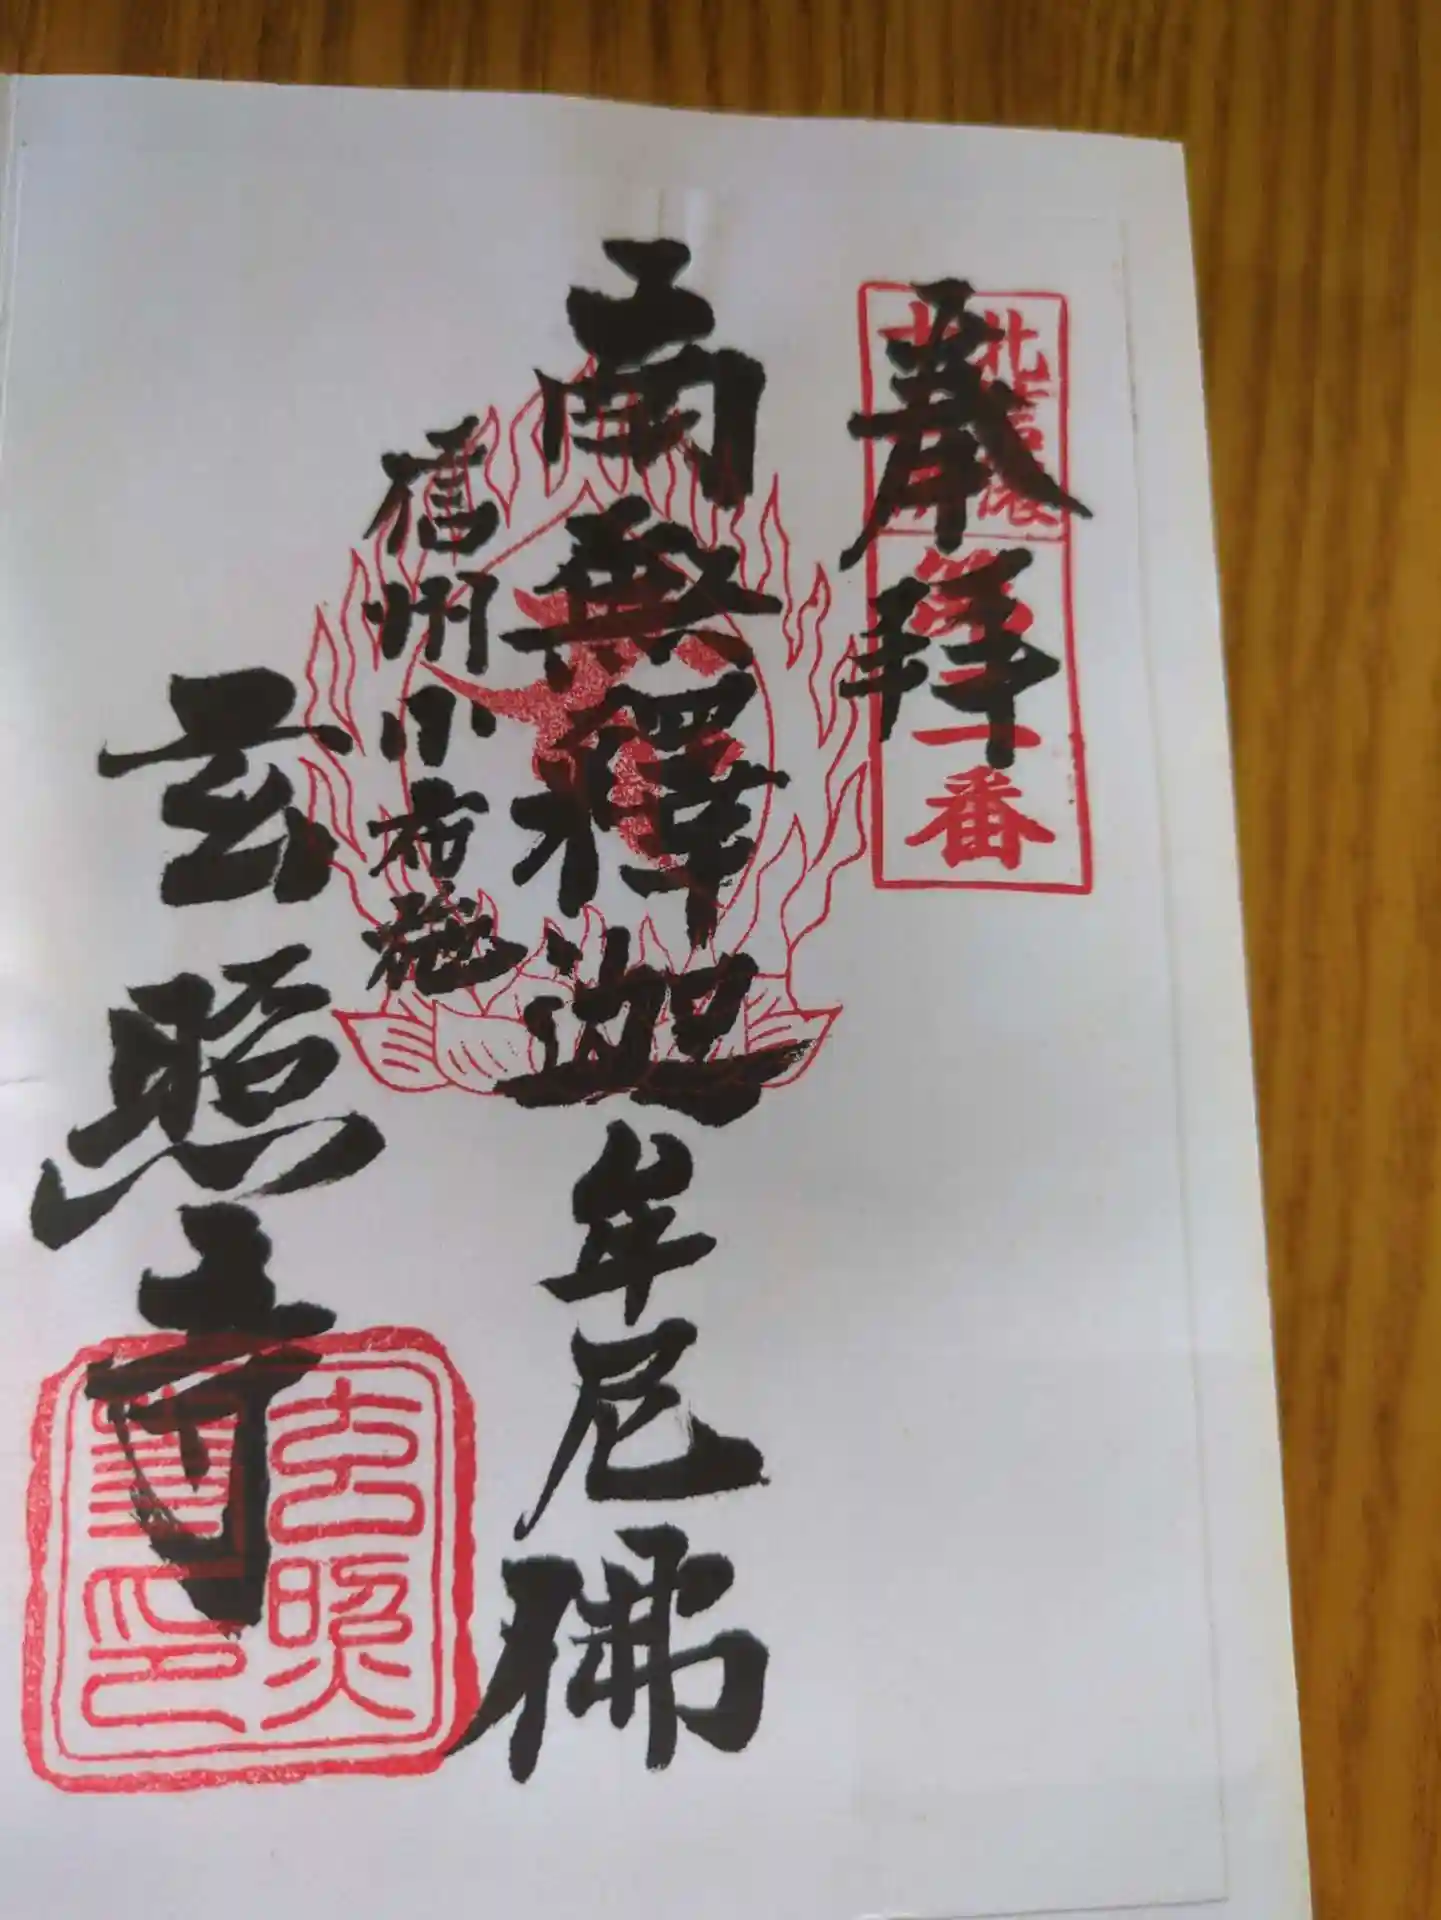 奉拝
北信濃
一番
南無釋迦牟尼佛
信州小布施
玄照寺
玄照
寺印